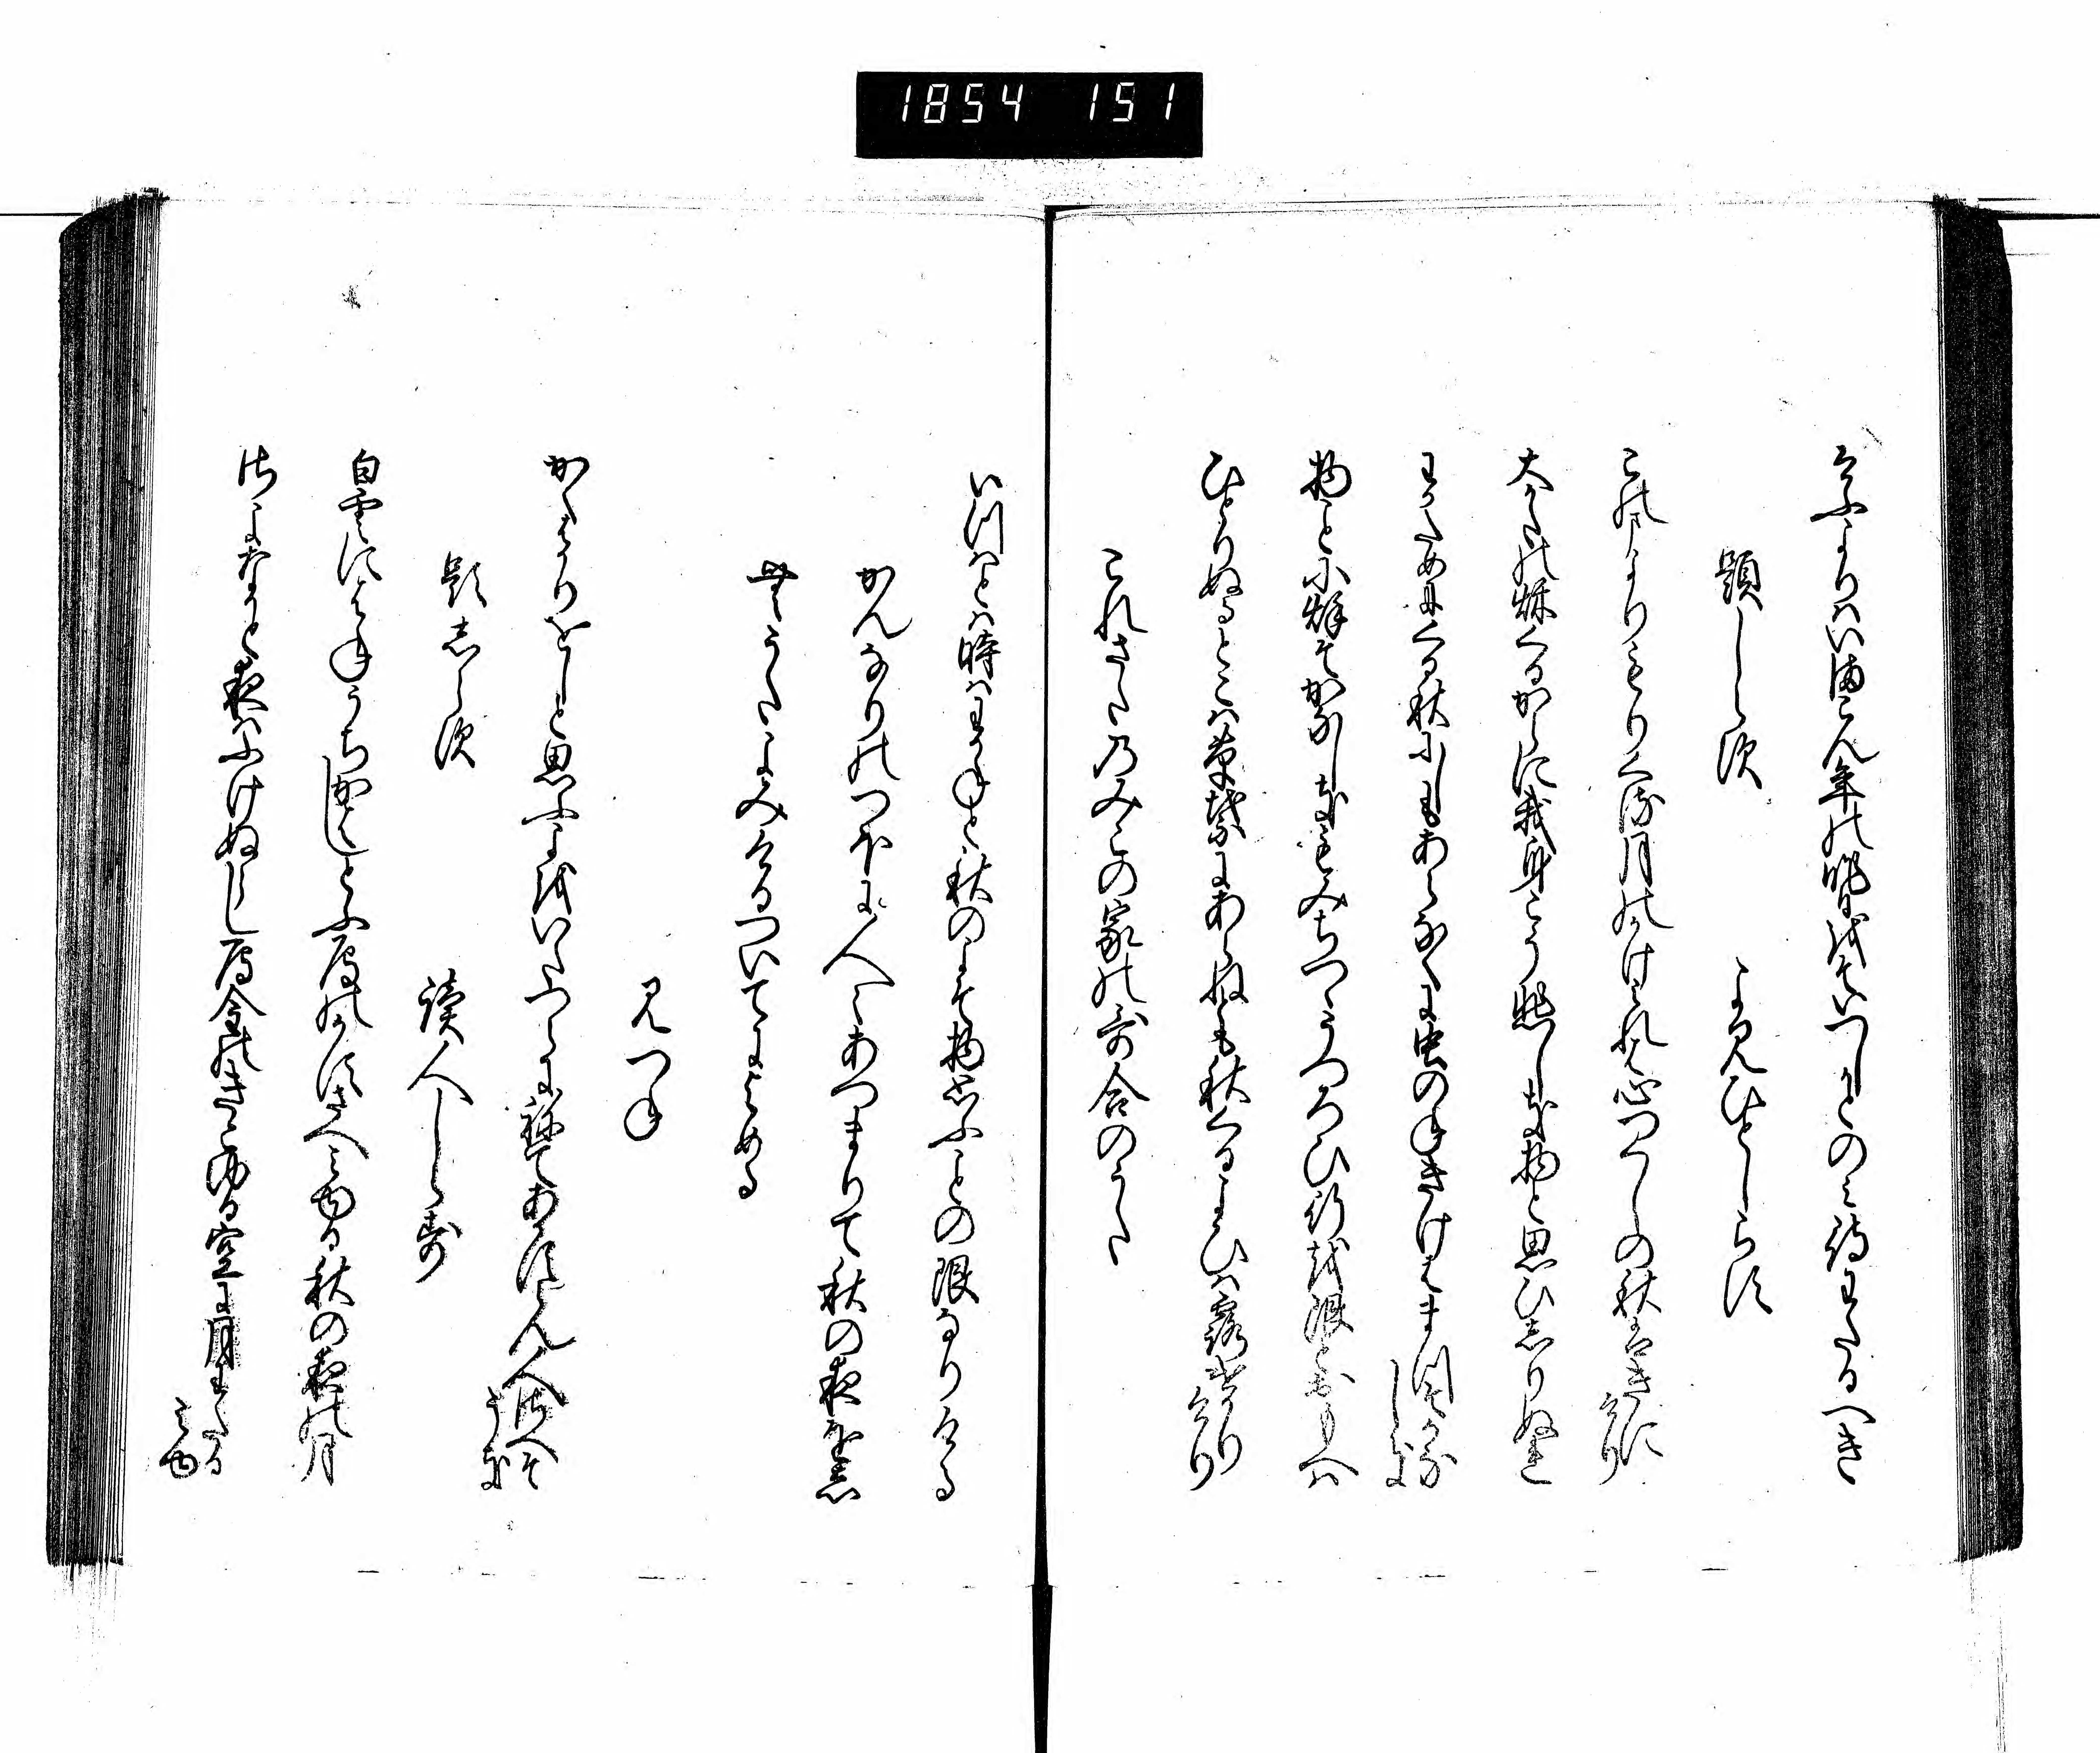 1854 151
けふよりはいまこん年の昨日をそいつしかとのみ待わたるへき
題しらす よみひとしらす
このまよりもりくる月のかけみれは心つくしの秋はきにけり
大かたの秋くるからに我身こそ悲しき物と思ひしりぬれ
わかためにくる秋にしもあらなくに虫のねきけはまつそかなしき
物ことに秋そかなしきもみちつゝうつろひ行を限とおもへは
ひとりぬるとこは草葉にあらねとも秋くるよひは露けかりけり
これさたのみこの家の哥合のうた
いつはとは時はわかねと秋のよそ物思ふことの限なりける
かんなりのつほに人々あつまりて秋の夜をおしむうたよみけるついてによめる
みつね
かくはかりをしと思ふよをいたつらに祢てあかすらん人さへそうき
題しらす 讀人しらす
白雲にはねうちかはしとふ雁のかすさへみゆる秋の夜の月
さよなかと夜はふけぬらし雁金のきこゆる空に月わたるみゆ